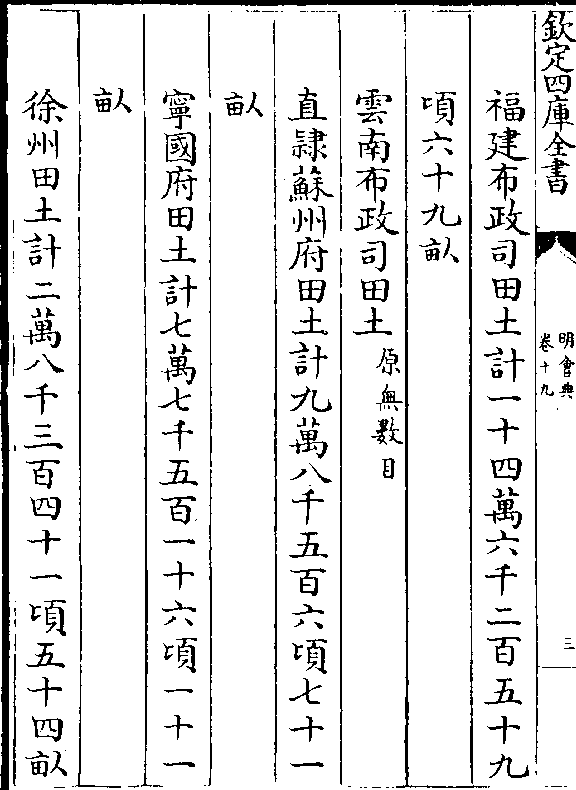 欽定四庫全書
明會典
卷十九
三
福建布政司田土計一十四萬六千二百五十九
頃六十九畝
雲南布政司田土原無數目
直隷蘇州府田土計九萬八千五百六頃七十一
畝
寧國府田土計七萬七千五百一十六頃一十一
畝
徐州田土計二萬八千三百四十一頃五十四畝